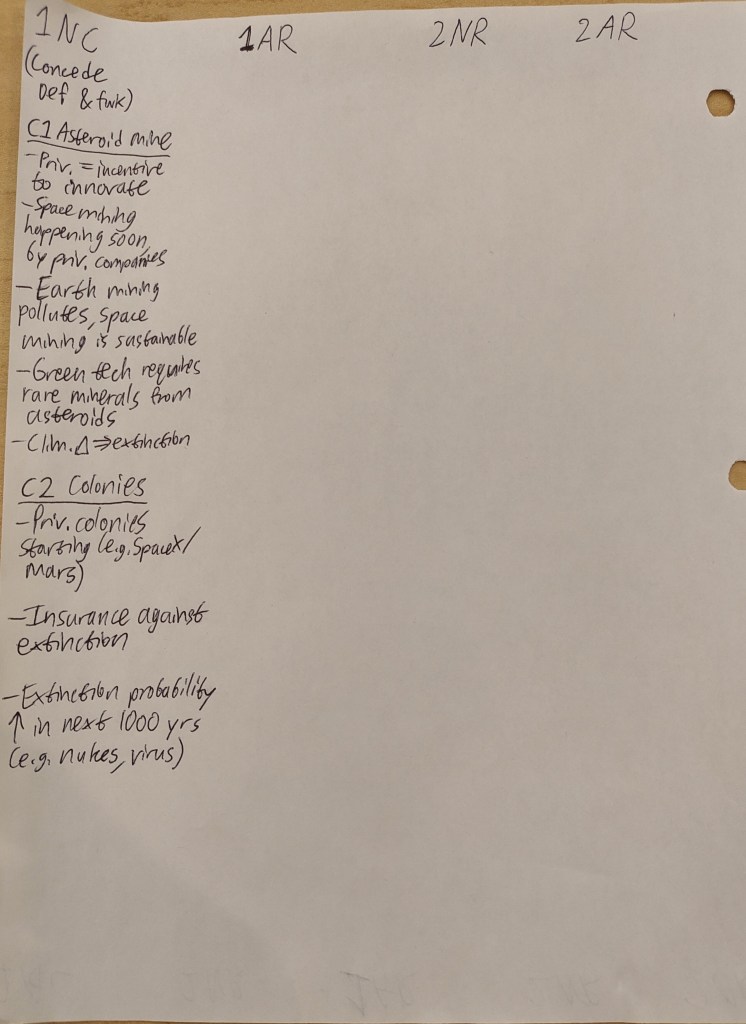 1NC 1AR 2NR 2AR
(Concede
Def & fwk)
C1 Asteroid mine
-Priv. = incentive
to innovate
-Space mining
happening soon
by priv. companies
-Earth mining
pollutes, space
mining is sustainable
-Green tech requires
rare minerals from
asteroids
-Clim. Δ ⇒ extinction
C2 Colonies
-Priv. colonies
starting (e.g. SpaceX/
Mars)
-Insurance against
extinction
-Extinction probability
↑ in next 1000 yrs
(e.g. nukes, virus)